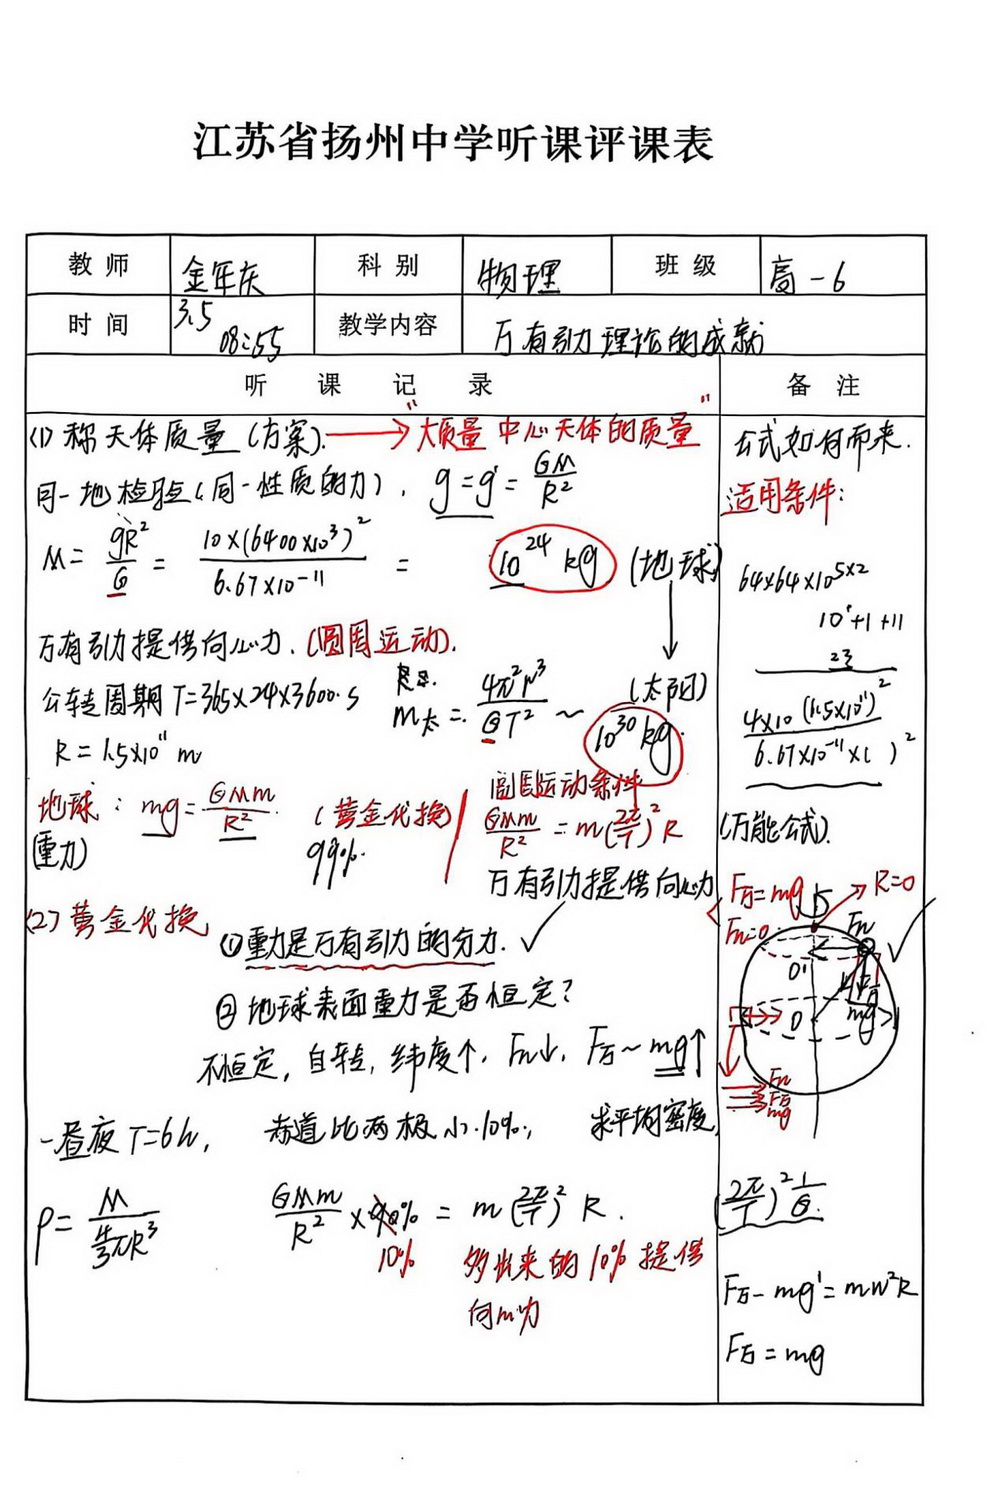 江苏省扬州中学听课评课表
教师 金年庆 科别 物理 班级 高一6
时间 3.5 08:55 教学内容 万有引力理论的成就
听课记录 备注
(1) 称天体质量(方案). → "大质量中心天体的质量"
同一地检验(同一性质的力), g=g'=GM/R²
M=gR²/G=10×(6400×10³)²/6.67×10⁻¹¹= 10²⁴kg (地球)
万有引力提供向心力. (圆周运动).
公转周期T=365×24×3600·S
M太=4π²r³/GT² ~ 10³⁰kg. (太阳)
R=1.5×10¹¹m
地球: mg=GMm/R² (黄金代换)
(重力) 99%.
圆周运动条件
GMm/R²=m(2π/T)²R
万有引力提供向心力
(2) 黄金代换
①重力是万有引力的分力.✓
②地球表面重力是否恒定?
不恒定, 自转, 纬度个. Fn↓. F万~mg↑
一昼夜T=6h, 赤道比两极小10%, 求平均密度,
ρ=M/(4/3πR³) GMm/R²×90%=m(2π/T)²R.
10% 多出来的10%提供
向心力
公式如何而来.
适用条件:
64×64×10^5×2
10'+1+11
23
4×10(1.5×10¹¹)²/6.67×10⁻¹¹×( )²
(万能公式).
F万=mg R=0
Fn=0 Fn
O'
O mg
Fn
F万
mg
(2π/T)²1/G.
F万-mg'=mw²R
F万=mg